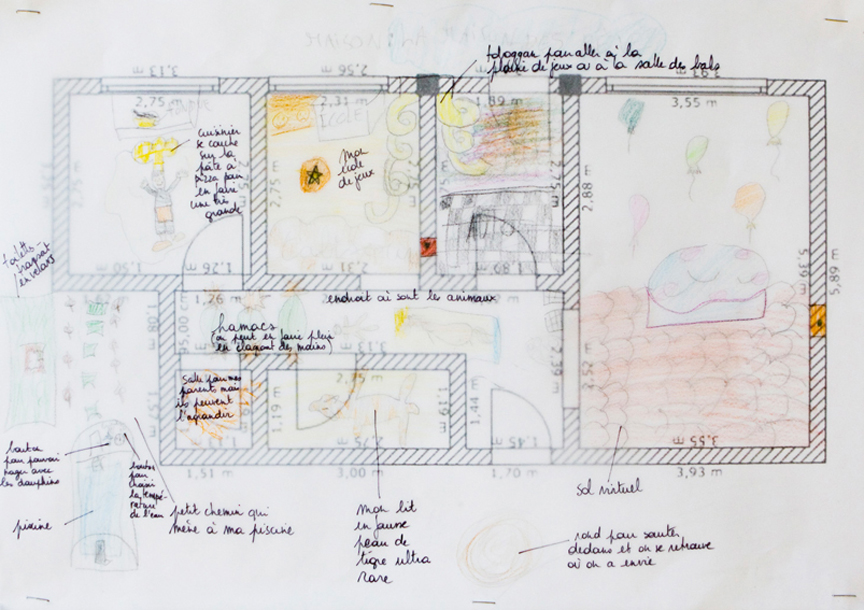 toboggan pour aller à la
plaine de jeux ou à la salle des bals
3,13 m
2,56 m
3,93 m
2,75 m
2,31 m
1,89 m
3,55 m
ECOLE
cuisinier
se couche
sur la
pâte à
pizza pour
en faire
une très
grande
mon
salle
de jeux
2,75 m
2,75 m
2,75 m
2,88 m
5,19 m
5,89 m
1,50 m
1,26 m
2,31 m
1,89 m
toilettes
volants
1,26 m
endroit où sont les animaux
hamacs
(on peut en faire plein
en claquant des mains)
95,00 cm
salle pour mes
parents mais
ils peuvent
l'agrandir
2,75 m
1,19 m
1,19 m
1,44 m
2,52 m
2,75 m
1,45 m
3,55 m
1,51 m
3,00 m
1,70 m
3,93 m
bouton
pour pouvoir
nager avec
les dauphins
bouton
pour
choisir
la tempé-
rature
de l'eau
piscine
petit chemin qui
mène à ma piscine
mon lit
en fausse
peau de
tigre ultra
rare
sol virtuel
rond pour sauter
dedans et on se retrouve
où on a envie